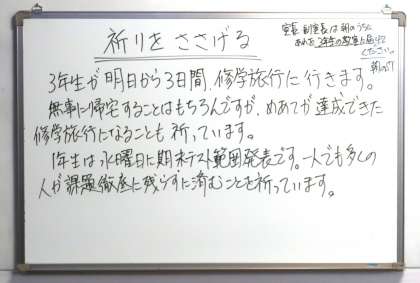 祈りをささげる
3年生が明日から3日間、修学旅行に行きます。
無事に帰宅することはもちろんですが、めあてが達成できた
修学旅行になることも祈っています。
1年生は水曜日に期末テスト範囲発表です。一人でも多くの
人が課題徹底に残らずに済むことを祈っています。
室長 副室長は朝のうちに
3年生の教室に
ください。